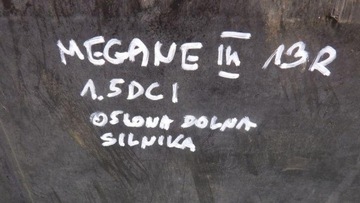 MEGANE III 13R
1.5DCI
OSLONA DOLNA
SILNIKA